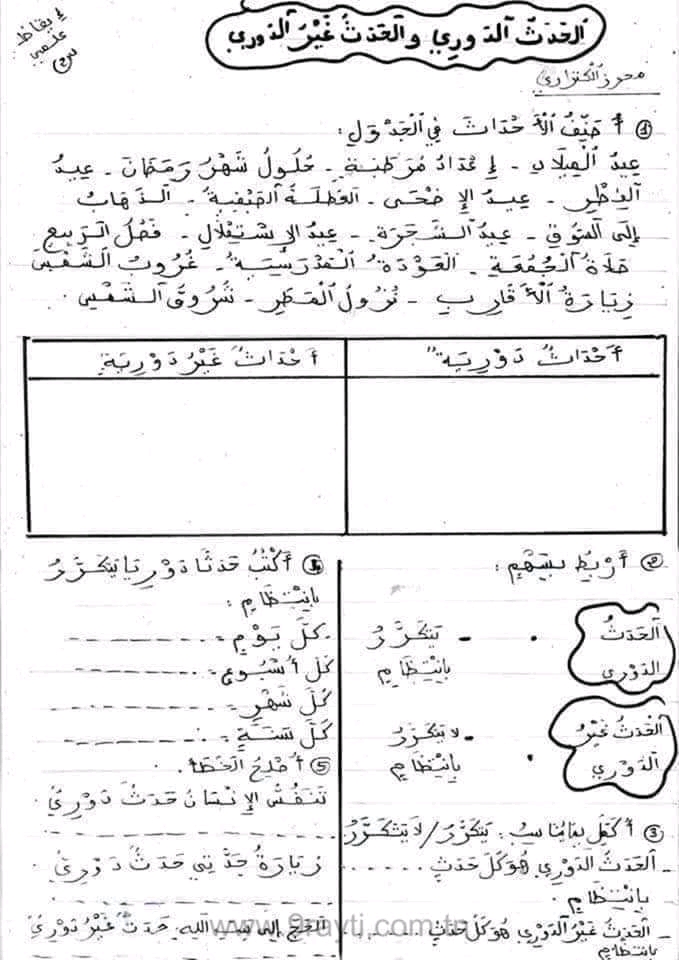 إيقاظ
علمي
س2
الحَدَثُ الدَّوْرِي والحَدَثُ غَيْرُ الدَّوْرِي
محرز الكنزاري
① أُصَنِّفُ الأَحْدَاثَ فِي الْجَدْوَلِ:
عِيدُ الْمِيلَادِ - إِعْدَادُ مُرَطِّبَةٍ - حُلُولُ شَهْرِ رَمَضَانَ - عِيدُ
الفِطْرِ - عِيدُ الإِضْحَى - العُطْلَةُ الصَّيْفِيَّةُ - الذَّهَابُ
إِلَى السُّوقِ - عِيدُ الشَّجَرَةِ - عِيدُ الإِسْتِقْلَالِ - فَصْلُ الرَّبِيعِ
صَلَاةُ الْجُمُعَةِ - العَوْدَةُ الْمَدْرَسِيَّةُ - غُرُوبُ الشَّمْسِ
زِيَارَةُ الأَقَارِبِ - نُزُولُ الْمَطَرِ - شُرُوقُ الشَّمْسِ.
أَحْدَاثٌ دَوْرِيَّةٌ
أَحْدَاثٌ غَيْرُ دَوْرِيَّةٍ
② أَرْبِطُ بِسَهْمٍ:
الحَدَثُ
الدَّوْرِي
يَتَكَرَّرُ
بِانْتِظَامٍ
الحَدَثُ غَيْرُ
الدَّوْرِي
لا يَتَكَرَّرُ
بِانْتِظَامٍ
③ أُكْمِلُ بِمَا يُنَاسِبُ: يَتَكَرَّرُ/لَا يَتَكَرَّرُ
- الحَدَثُ الدَّوْرِي هُوَ كُلُّ حَدَثٍ ......
بِانْتِظَامٍ.
- الحَدَثُ غَيْرُ الدَّوْرِي هُوَ كُلُّ حَدَثٍ ......
بِانْتِظَامٍ
أَكْتُبُ حَدَثًا دَوْرِيًّا يَتَكَرَّرُ
بِانْتِظَامٍ:
- كُلَّ يَوْمٍ:
كُلَّ أُسْبُوعٍ:
كُلَّ شَهْرٍ:
كُلَّ سَنَةٍ:
⑤ أُصْلِحُ الخَطَأَ.
تَنَفُّسُ الإِنْسَانُ حَدَثٌ دَوْرِيٌّ
زِيَارَةُ جَدَّتِي حَدَثٌ دَوْرِيٌّ
الحَجُّ إِلَى بيت الله حَدَثٌ غَيْرُ دَوْرِيٍّ
www.9rayti.com.tn